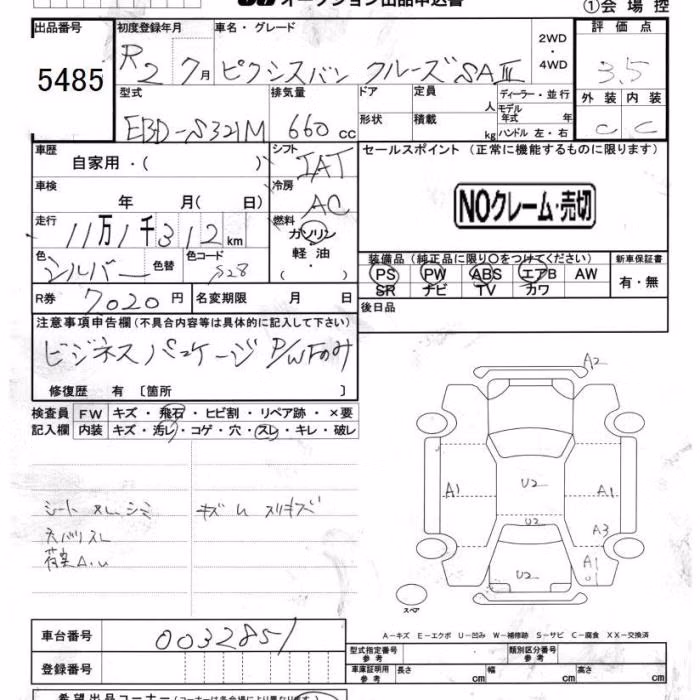 オークション出品申込書
①会場控
出品番号
5485
初度登録年月
R2 7月
車名・グレード
ピクシスバン クルーズSAⅢ
2WD
・
4WD
評価点
3.5
外装 内装
C C
型式
EBD-S321M
排気量
660 cc
ドア
形状
定員
人
積載
kg
ディーラー・並行
モデル年式 年
ハンドル 左・右
車歴
自家用・( )
シフト
IAT
セールスポイント (正常に機能するものに限ります)
NOクレーム・売切
車検
年 月( 日)
冷房
AC
走行
11万1千312km
燃料
ガソリン
軽油
( ・ )
色
シルバー
色替
色コード
S28
装備品 (純正品に限り○をつけてください)
PS PW ABS エアB AW
SR ナビ TV カワ
新車保証書
有・無
R券 7020円
名変期限 月 日
後日品
注意事項申告欄 (不具合内容等は具体的に記入して下さい)
ビジネスパッケージ P/WFのみ
修復歴 有 〔箇所 〕
検査員
記入欄
FW キズ・飛石・ヒビ割・リペア跡・×要
内装 キズ・汚レ・コゲ・穴・スレ・キレ・破レ
シート スレ シミ
天バリスレ
荷室A.U
キズ U スリキズ
A2
A1
U2
A1
U2
A3
A1
U2
スペア
A-キズ E-エクボ U-凹み W-補修跡 S-サビ C-腐食 XX-交換済
車台番号
0032851
登録番号
型式指定番号
参考
類別区分番号
参考
車庫証明用
参考
長さ cm
幅 cm
高さ cm
希望出品コーナー